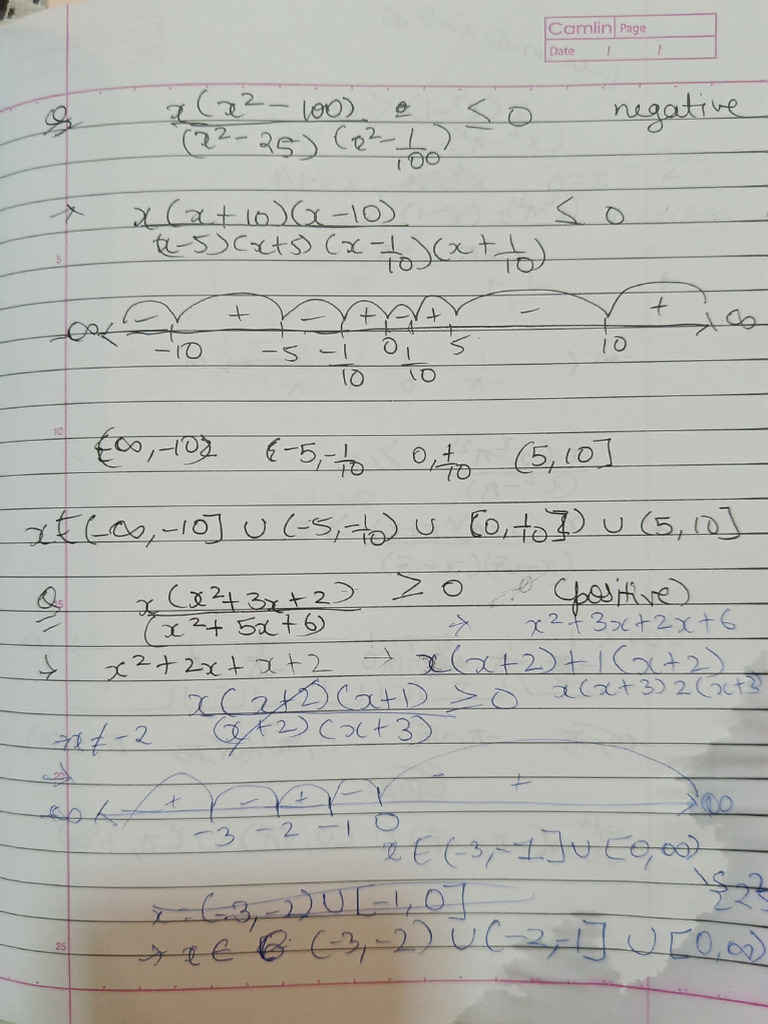 Camlin Page
Date / /
Q x(x² - 100) / (x² - 25)(x² - 1/100) ≤ 0 negative
→ x(x+10)(x-10) / (x-5)(x+5)(x-1/10)(x+1/10) ≤ 0
5
∞ - + - + - + - + ∞
-10 -5 -1/10 0 1/10 5 10
10
(∞, -10] (-5, -1/10 0, 1/10 (5, 10]
x ∈ (-∞, -10] ∪ (-5, -1/10) ∪ [0, 1/10) ∪ (5, 10]
Q x(x² + 3x + 2) / (x² + 5x + 6) ≥ 0 (positive)
→ x² + 3x + 2x + 6
→ x² + 2x + x + 2 → x(x+2) + 1(x+2)
x(x+3) 2(x+3
x(x+2)(x+1) / (x+2)(x+3) ≥ 0
→ x ≠ -2
20
∞ + - + - + ∞
-3 -2 -1 0
x ∈ (-3, -1] ∪ [0, ∞)
x = (-3, -2) ∪ [-1, 0]
25
→ x ∈ (-3, -2) ∪ (-2, -1] ∪ [0, ∞)